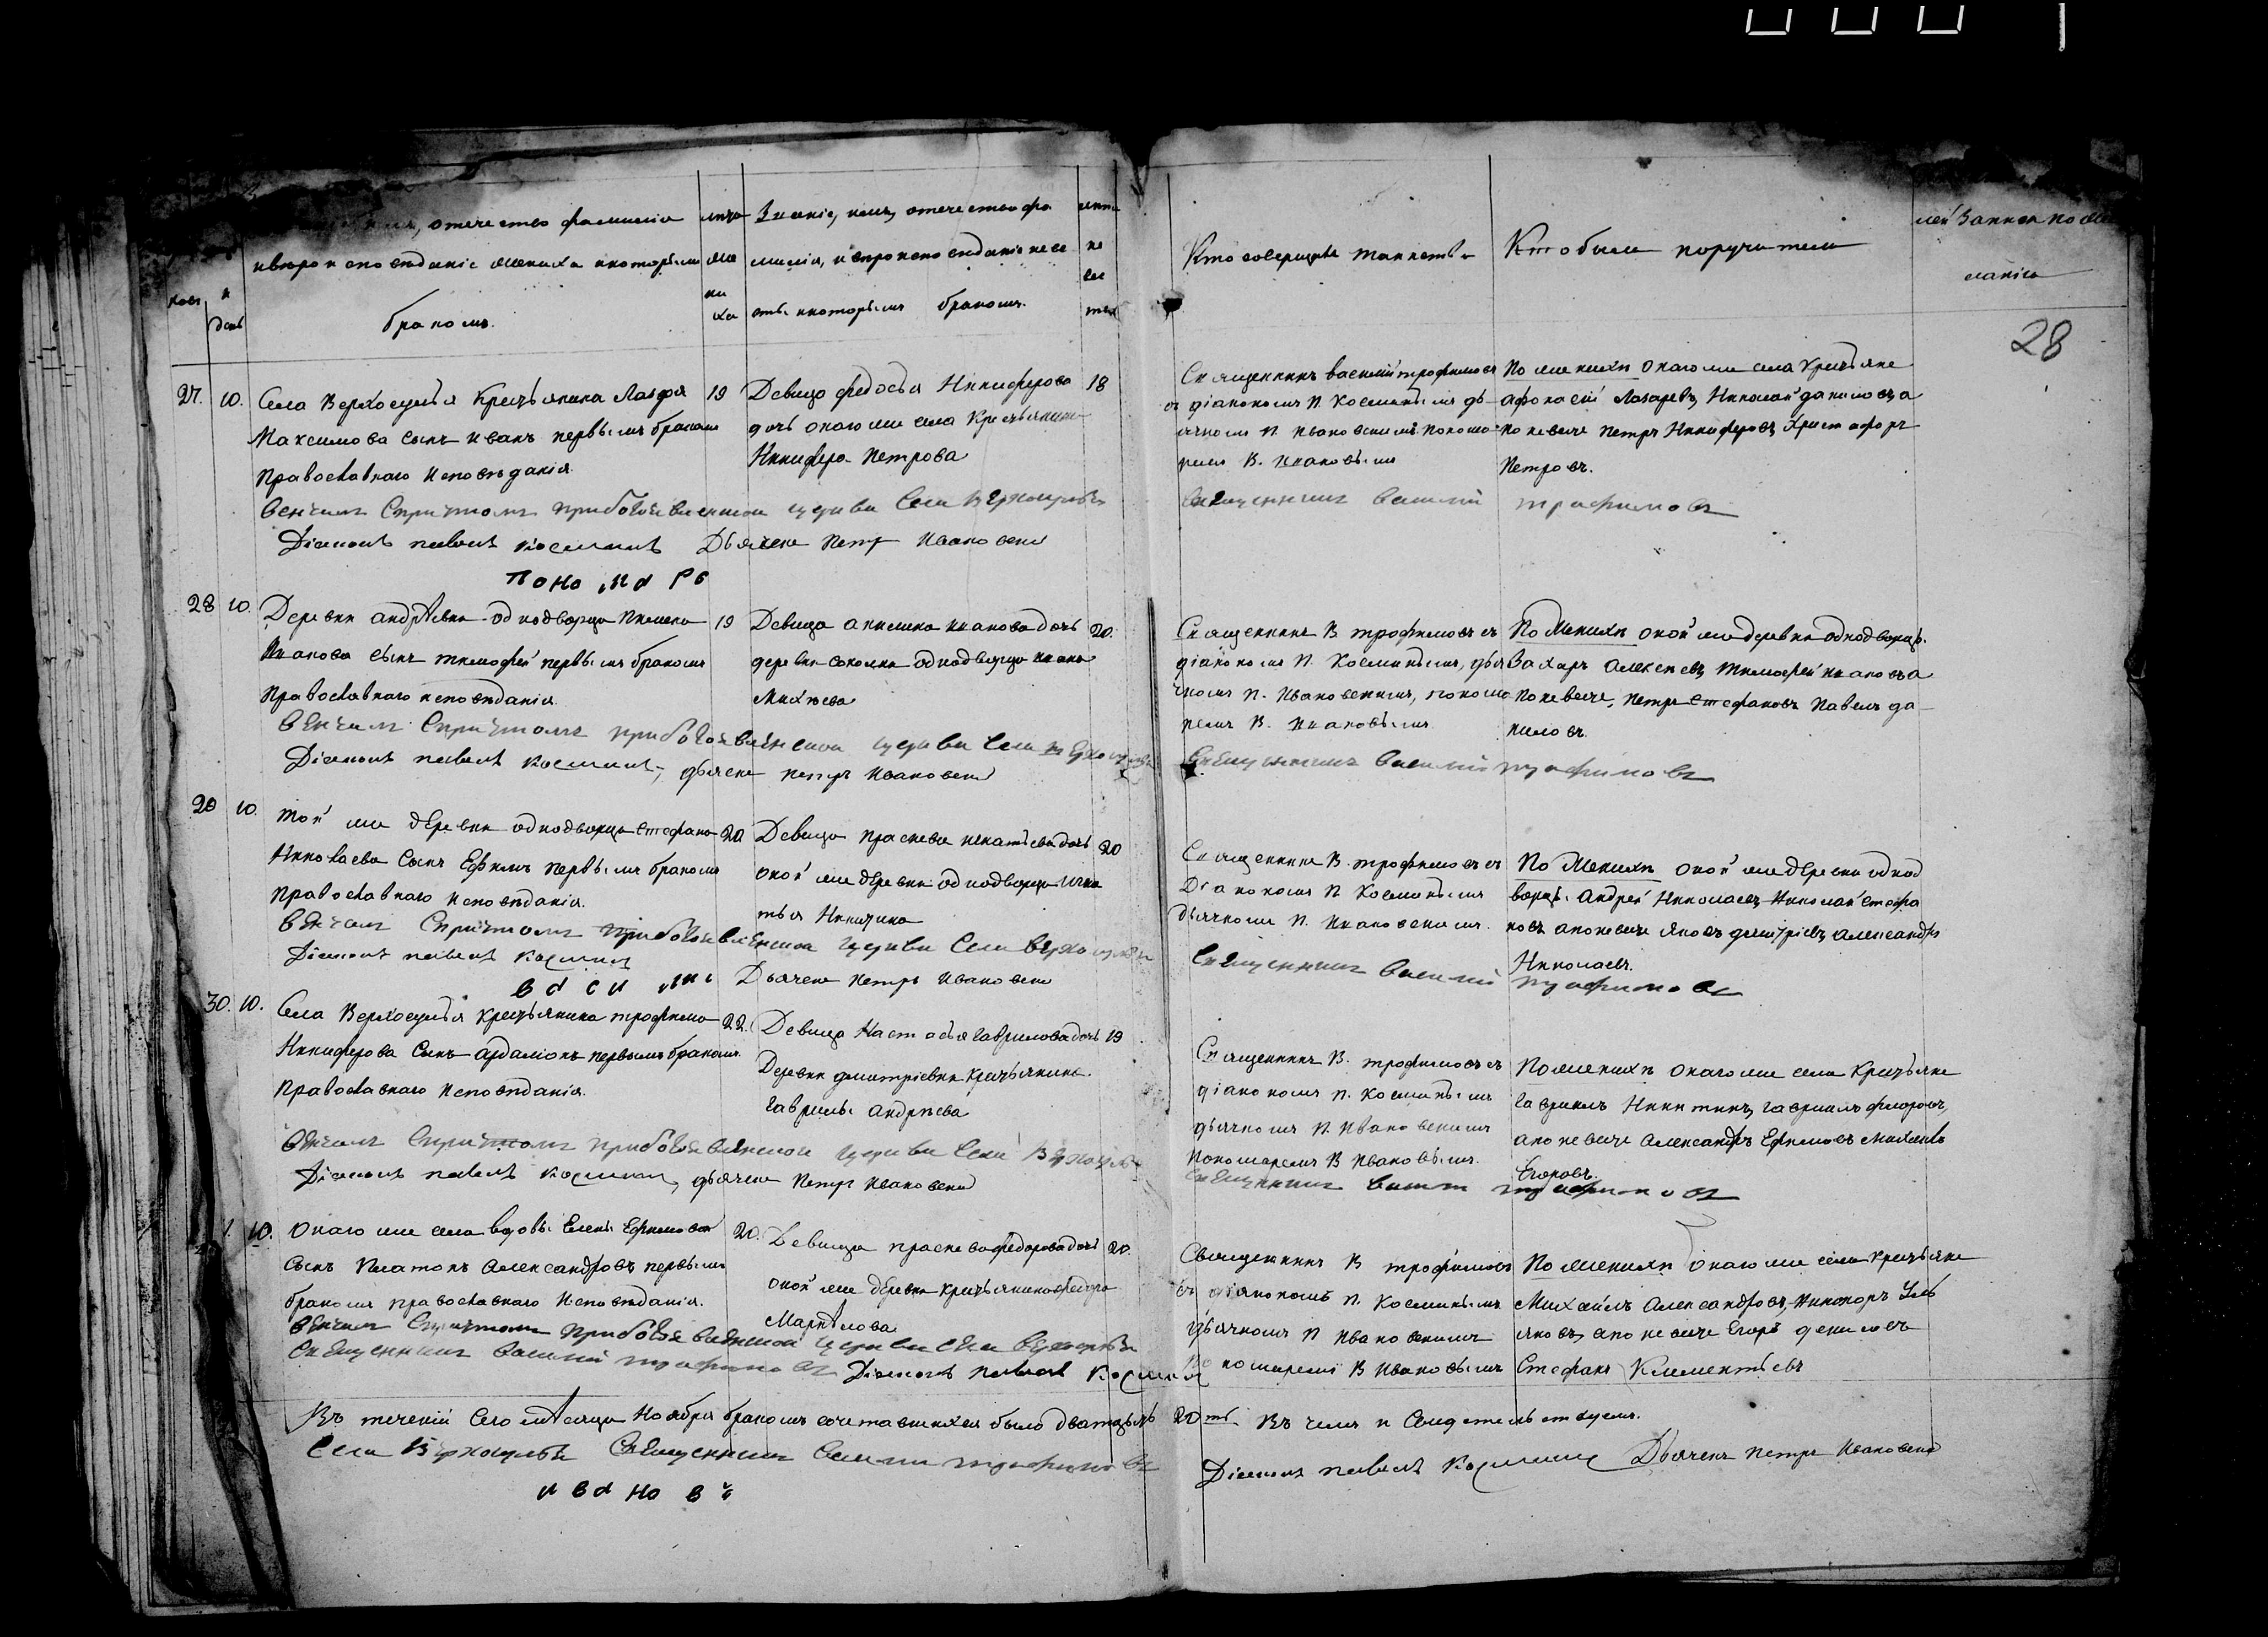 отечество фамилія
лета
Званіе, имя, отечество фа
лета
и вероисповѣданіе жениха и которымъ
же
милія, и вероисповеданіе неве
не
ни
ха
сты и которымъ бракомъ.
ве
сты
бракомъ.
день
Кто совершалъ таинство
Кто были поручители
28
27.
10.
Села Верхосулья Крестьянина
19
Максимова сынъ Иванъ первымъ бракомъ
Православнаго исповѣданія.
Девица Федосья Никиферова
18
дочь онаго же села Крестьянина
Никифера Петрова
Священникъ василий трофимовъ
съ діакономъ П. Косминымъ дь
ячкомъ П. Ивановскимъ Понома
ремъ В. Ивановымъ
По женихѣ онаго же села Крестьяне
Лазаревъ, Николай даниловъ, а
по невесте Петръ Никиферовъ, Христофоръ
Петровъ.
Венчалъ Спричтомъ церкви Села Верхосулья
Священникъ Василий трофимовъ
Діаконъ павелъ Косминъ Дьячекъ Петръ Ивановскій
по но ма рь
28
10.
Деревни андрѣевки однодворца
19
Иванова сынъ тимофей первымъ бракомъ
Православнаго исповѣданія.
Девица акилина иванова дочь
20.
деревни соколки однодворца ивана
Михѣева
Священникъ В. трофимовъ съ
діакономъ П. Косминымъ, дья
чкомъ П. Ивановскимъ, понома
ремъ В. Ивановымъ
По Женихѣ оной же деревни однодворцы
Захаръ Алексеевъ, тимофей ивановъ а
По невесте, Петръ Стефановъ Павелъ да
ниловъ.
Венчалъ Спричтомъ церкви Села
Діаконъ павелъ Косминъ, дьячекъ петръ Ивановскій
Священникъ василий трофимовъ
29
10.
той же деревни однодворца Стефана
20
Николаева Сынъ Ефимъ Первымъ бракомъ
Православнаго исповѣданія.
Девица Прасковья игнатьева дочь
20
оной же деревни однодворца Игна
тья Никитина
Священникъ В. трофимовъ съ
Діакономъ П. Косминымъ
дьячкомъ П. Ивановскимъ.
По Женихѣ оной же деревни однод
ворцы Андрей Николаевъ, Николай Стефа
новъ а по невесте Яковъ дмитріевъ, Александръ
Николаевъ.
Венчалъ Спричтомъ церкви Села Верхосулья
Діаконъ павелъ Косминъ Дьячекъ Петръ Ивановскій
ва си лий
Священникъ Василий трофимовъ
30.
10.
Села Верхосулья Крестьянина трофима
22.
Никиферова Сынъ Ардаліонъ первымъ бракомъ.
Православнаго исповѣданія.
Девица Настасья Гаврилова дочь
19
Деревни дмитріевки Крестьянина
Гаврилы Андрѣева
Священникъ В. трофимовъ съ
діакономъ П. Косминымъ
дьячкомъ П. Ивановскимъ
Пономаремъ В Ивановымъ.
По женихѣ онаго же села Крестьяне
Гавриилъ Никитинъ, Гавриилъ Федоровъ,
а по невесте Александръ Ефимовъ Михаилъ
Егоровъ.
Венчалъ Спричтомъ церкви Села
Діаконъ павелъ Косминъ, дьячекъ Петръ Ивановскій
Священникъ трофимовъ
10.
онаго же села вдовы Елены Ефимовой
20.
Сынъ Платонъ Александровъ первымъ
бракомъ православнаго Исповѣданія.
Девица прасковья федорова дочь
20.
оной же деревни Крестьянина федора
Маркѣлова
Священникъ В трофимовъ
съ діакономъ П. Косминымъ
дьячкомъ П Ивановскимъ
Пономаремъ В Ивановымъ
По женихѣ онаго же села крестьяне
Михаилъ Александровъ, Никоноръ Уль
яновъ, а по невесте Егоръ денисовъ
Стефанъ Климентьевъ
Венчалъ Спричтомъ церкви села
Священникъ василий трофимовъ Діаконъ Павелъ Косминъ
Въ теченіи Сего мѣсяца Ноября бракомъ сочетавшихся было дватцать
20ть. Въ чемъ и Свидетельствуемъ.
Села Верхосулья Священникъ Василий трофимовъ
Діаконъ павелъ Косминъ Дьячекъ Петръ Ивановскій
и ва но въ